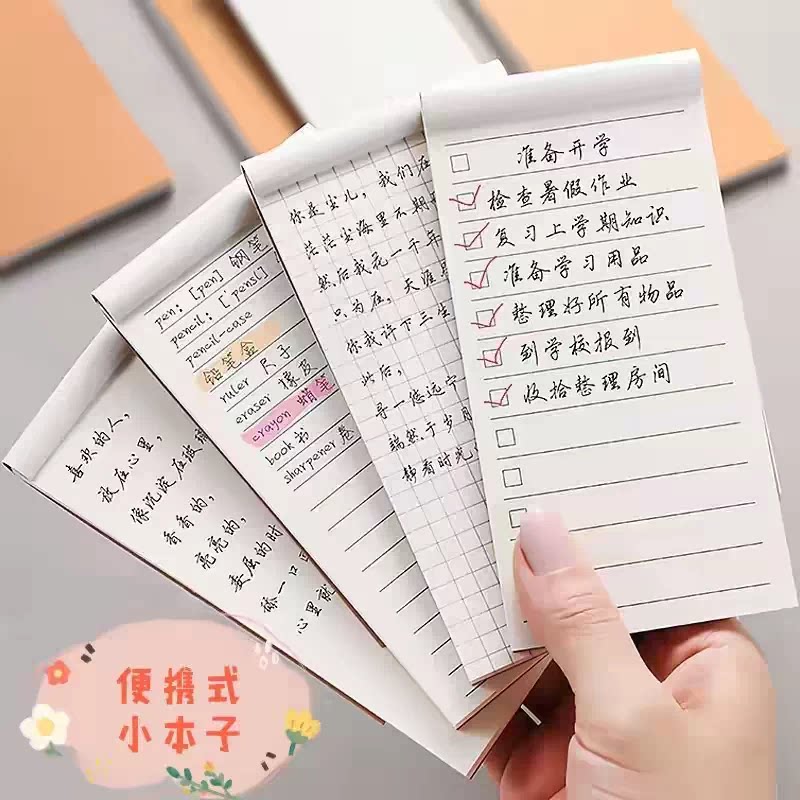 喜欢的人，
放在心里，
像沉淀在玻璃
香香的，
亮亮的，
委屈的时
舔一口
心里就
pen: [pen] 钢笔
pencil: [ˈpensl]
pencil-case
铅笔盒
ruler 尺子
eraser 橡皮
crayon 蜡笔
book 书
sharpener 卷
你是尘儿，我们在
茫茫尘海里不期
然后我花一千年
只为在，天涯
你我许下三生
此后，
寻一您远宁
端然于岁月
静看时光
准备开学
检查暑假作业
复习上学期知识
准备学习用品
整理好所有物品
到学校报到
收拾整理房间
便携式
小本子